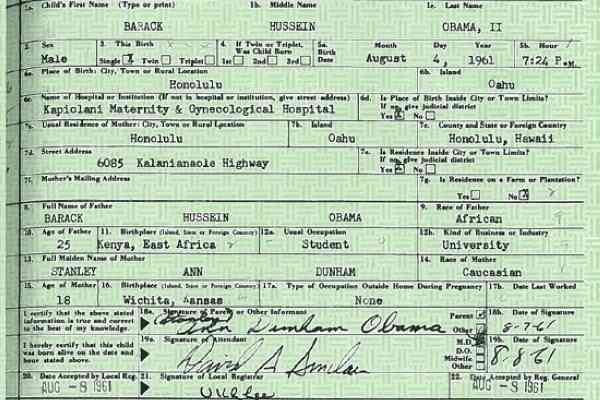 1a. Child's First Name (Type or print) 1b. Middle Name 1c. Last Name
BARACK HUSSEIN OBAMA, II
2. Sex 3. This Birth 4. If Twin or Triplet, Was Child Born 5a. Birth Date Month Day Year 5b. Hour
Male Single X Twin Triplet 1st 2nd 3rd August 4, 1961 7:24 P.M.
6a. Place of Birth: City, Town or Rural Location 6b. Island
Honolulu Oahu
6c. Name of Hospital or Institution (If not in hospital or institution, give street address) 6d. Is Place of Birth Inside City or Town Limits? If no, give judicial district
Kapiolani Maternity & Gynecological Hospital Yes X No
7a. Usual Residence of Mother: City, Town or Rural Location 7b. Island 7c. County and State or Foreign Country
Honolulu Oahu Honolulu, Hawaii
7d. Street Address 7e. Is Residence Inside City or Town Limits? If no, give judicial district
6085 Kalanianaole Highway Yes X No
7f. Mother's Mailing Address 7g. Is Residence on a Farm or Plantation?
Yes No X
8. Full Name of Father 9. Race of Father
BARACK HUSSEIN OBAMA African
10. Age of Father 11. Birthplace (Island, State or Foreign Country) 12a. Usual Occupation 12b. Kind of Business or Industry
25 Kenya, East Africa Student University
13. Full Maiden Name of Mother 14. Race of Mother
STANLEY ANN DUNHAM Caucasian
15. Age of Mother 16. Birthplace (Island, State or Foreign Country) 17a. Type of Occupation Outside Home During Pregnancy 17b. Date Last Worked
18 Wichita, Kansas None
I certify that the above stated information is true and correct to the best of my knowledge. 18a. Signature of Parent or Other Informant Parent Other 18b. Date of Signature
(Stanley) Ann Dunham Obama 8-7-61
I hereby certify that this child was born alive on the date and hour stated above. 19a. Signature of Attendant M.D. D.O. Midwife Other 19b. Date of Signature
David A Sinclair 8-8-61
20. Date Accepted by Local Reg. 21. Signature of Local Registrar 22. Date Accepted by Reg. General
AUG -8 1961 U K L Lee AUG -8 1961